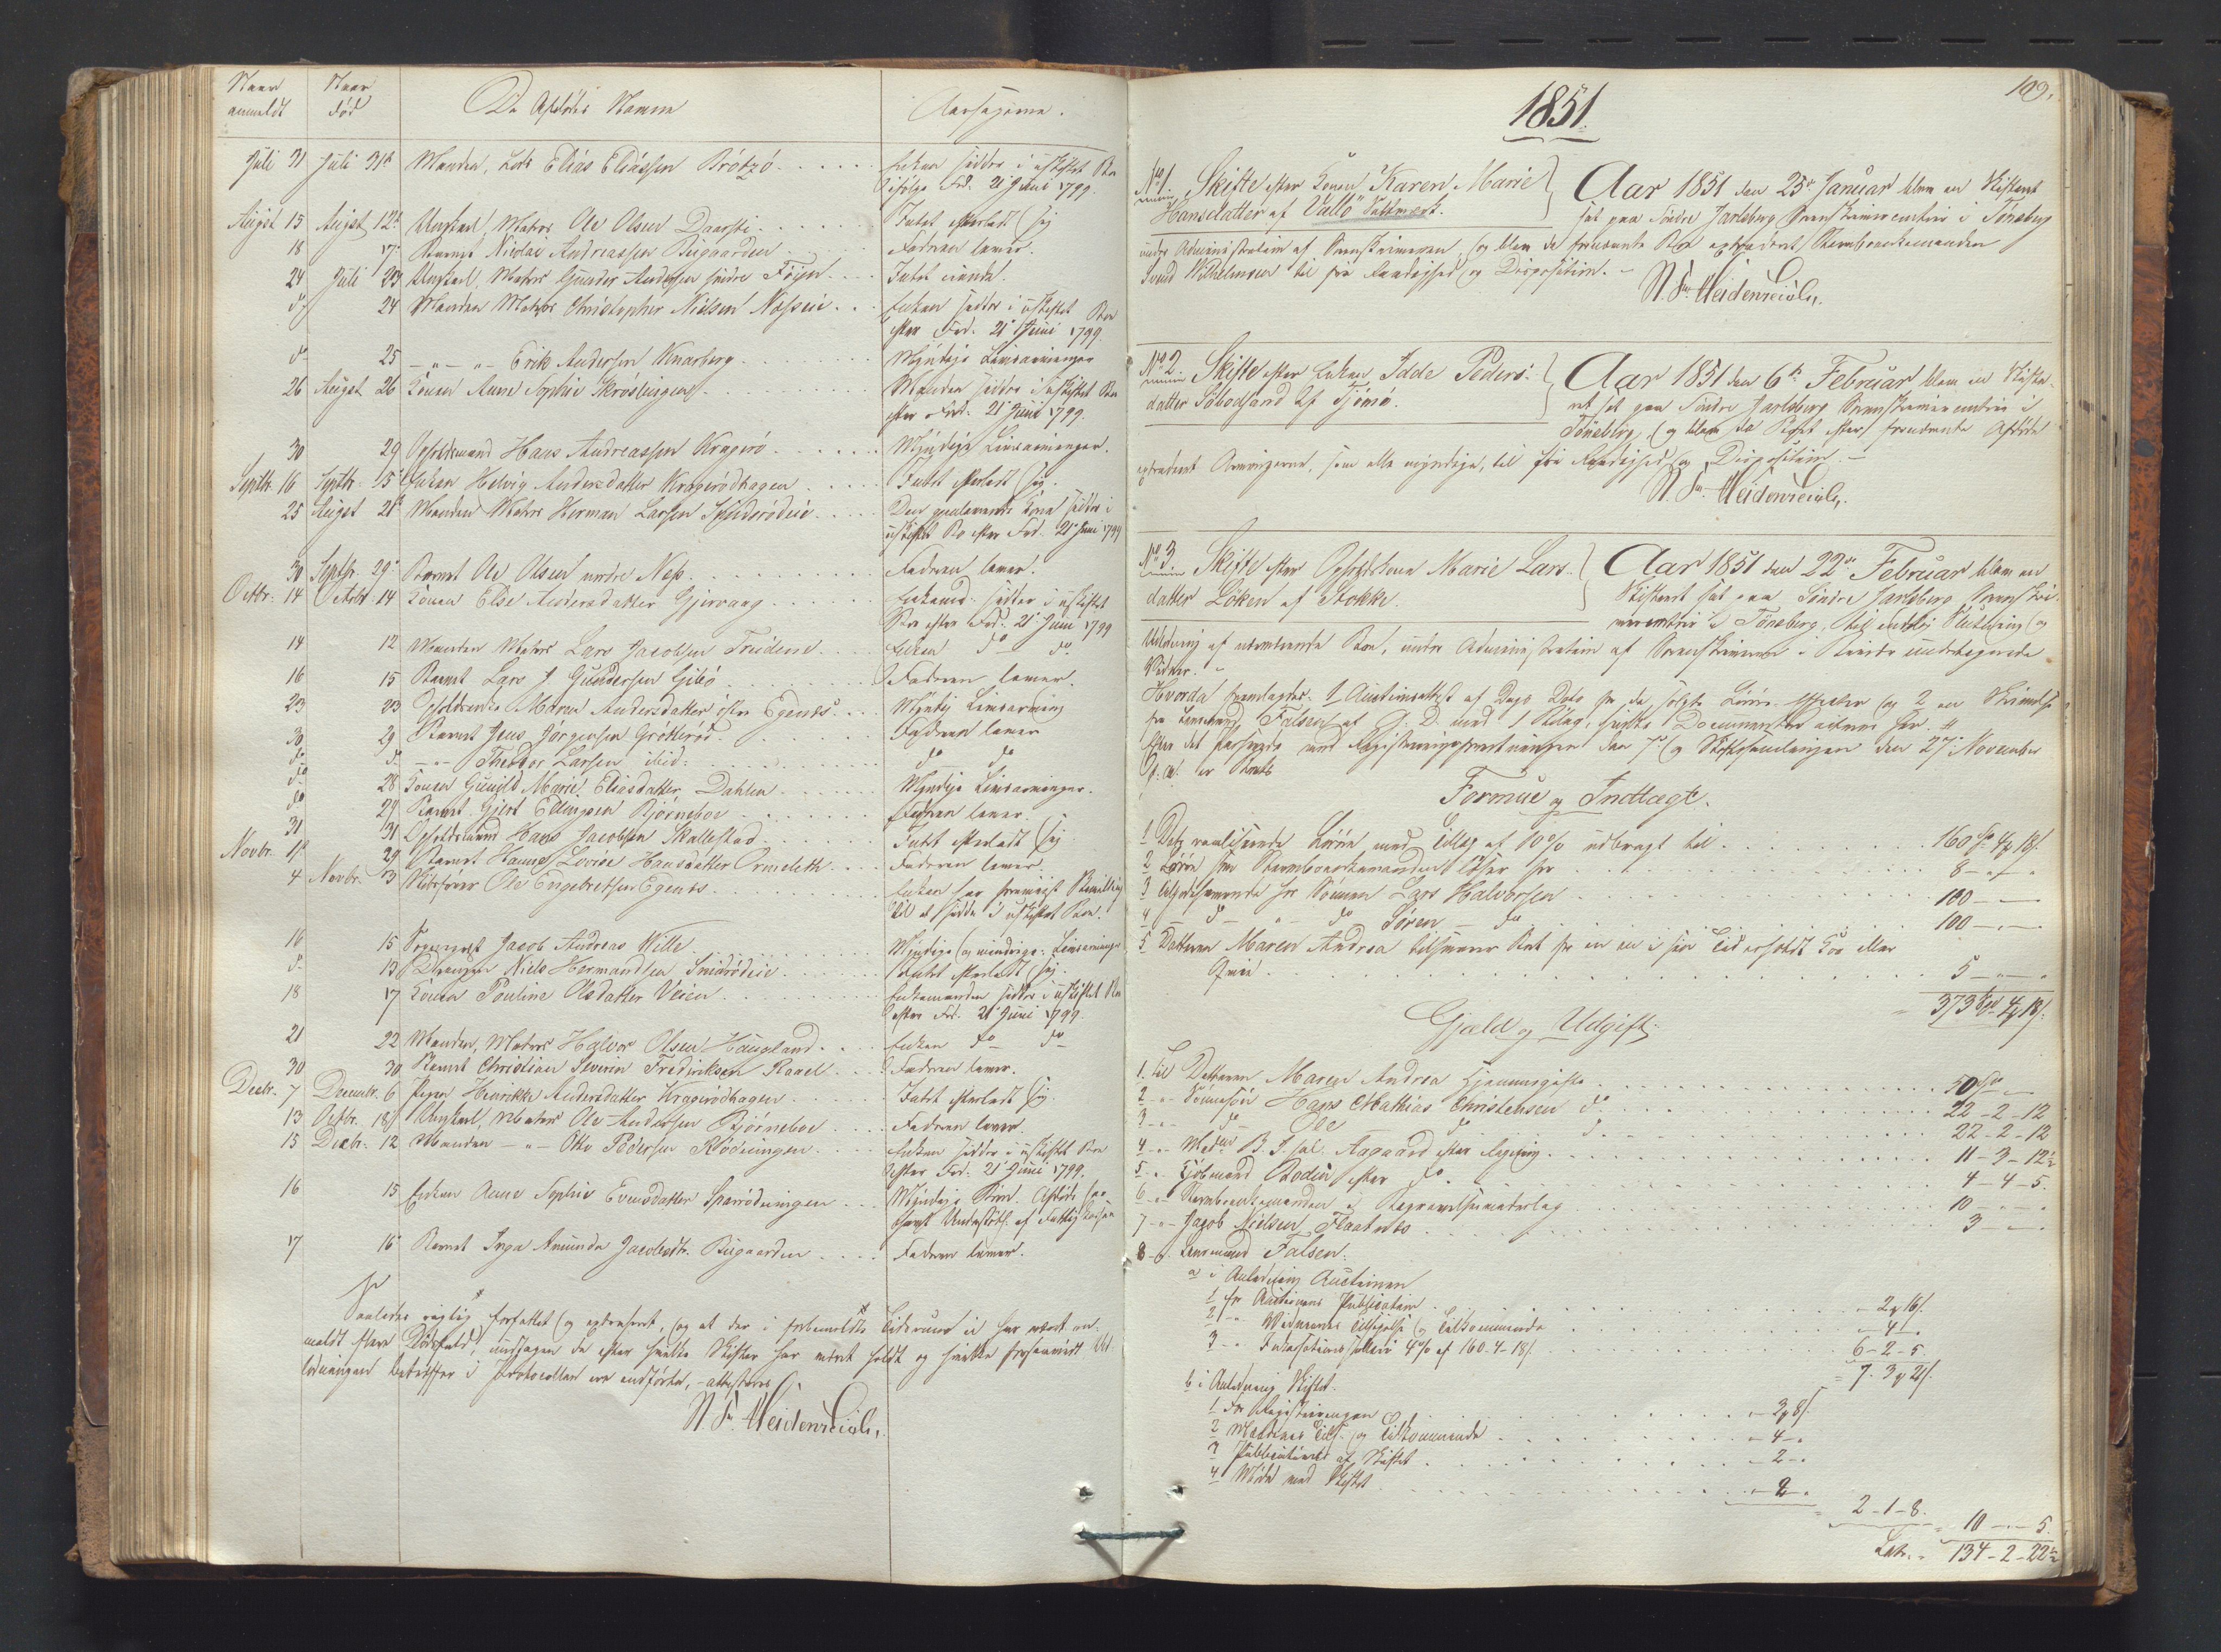 Naar
anmeldt
Naar
død
De Afdødes Navne
Aarsagerne.
Juli 31 Juli 31te Manden, Lods Elias Eliassen Brötzö
Enken sidder i uskiftet Bo
ifølge Fr. 21 Juni 1799.
August 15 August 12te Ungkarl, Matros Ole Olsen
Intet efterladt sig
18 17 Barnet Nicolai Andreassen Buegaarden
Faderen lever.
24 Juli 23 Ungkarl, Matros Gunder Andersen søndre Föyn
Intet eiende.
do 24 Manden Matros Christopher Nielsen Næsseie
Enken sidder i uskiftet Bo
efter Frd. 21 Juni 1799.
do 25 — " — " — Erik Andersen Knarberg
Myndige Livsarvinger
26 August 26 Konen Anne Sophie
Manden sidder i uskiftet Bo
efter Frd. 21 Juni 1799.
30 29 Opholdsmand Hans Andreassen Kragerö
Myndige Livsarvinger.
Septbr. 16 Septbr. 15 Enken Helvig Andersdatter Krageródhagen
Intet efterladt sig.
25 August 21 Manden Matros Herman Larsen
Den gjenlevende Kone sidder i
uskiftet Bo efter Frd. 21 Juni 1799
30 Septbr. 29 Barnet Ole Olsen nordre Næs
Faderen lever.
Octbr. 14 Octobr. 14 Konen Else Andersdatter Gjervaag
Enkemd. sidder i uskiftet
Bo efter Frd. 21 Juni 1799
14 12 Manden Matros Lars Jacobsen
Enken do do
16 15 Barnet Lars J. Gundersen Gibö
Faderen lever.
23 23 Maren Andersdatter östre Egenæs
Myndig Livsarving
30 29 Barnet Jens Jörgensen Gróttteród
Faderen lever
do do — " — Theodor Larsen ibid:
do do
do 28 Konen Gunild Marie Eliasdatter Dahlen
Myndige Livsarvinger.
do 29 Barnet Gjert Bjørneboe
Faderen lever.
31 31 Opholdsmand Hans Jacobsen Skallestad
Intet efterladt sig
Novbr. 1 29 Barnet Hanne Lovise Hansdatter Ormeleth
Faderen lever.
4 Novbr. 3 Skibsfører Ole Engebretsen Egenæs
Enken har Bevilling
til at sidde i uskiftet Bo.
16 15 Jacob Andreas Wille
Myndige og umyndige Livsarvinger
do 13 Drengen Niels Hermandsen
Intet efterladt sig.
18 17 Konen Pauline Olsdatter Veien
Enkemanden sidder i uskiftet Bo
efter Frd. 21 Juni 1799.
21 22 Manden, Matros Halvor Olsen Haugland
Enken do do
30 30 Barnet Christian Severin Frederiksen Rauel
Faderen lever.
Decbr. 7 Decembr. 6 Pigen Henrikke Andersdatter Krageródhagen
Intet efterladt sig.
13 Octbr. 18 Ungkarl, Matros Ole Andersen Bjørneboe
Faderen lever.
15 Decbr. 12 Manden — " — Otto Pedersen Rödningen
Enken sidder i uskiftet Bo
efter Frd. 21 Juni 1799.
16 15 Enken Anne Sophie Evensdatter
Myndige Børn. Afdöde har
havt Understöttelse af Fattigkassen
17 16 Barnet Inga Amunda Jacobsdtr. Buegaarden
Faderen lever.
Saaledes rigtig forfattet og extraheret, og at der i forbemeldte Tidsrum ei har været an-
meldt flere Dödsfald, undtagen de efter hvilke Skifter har været holdt og hvilke forsaavidt Ud-
lodningen betræffer i Protocollen ere indførte, attesteres
N. Fr. Heidenreich.
109.
1851.
No 1. Skifte efter Konen Karen Marie
Hansdatter af "Vallö" Saltværk.
Aar 1851 den 25de Januar blev en Skifteret
sat paa Söndre Jarlsberg Sorenskrivercontoir i Tönsberg
under Administration af Sorenskriveren, og blev de fornævnte Boe extraderet Stervboenkemanden
Svend Wilhelmsen til fri Raadighed og Disposition. -
N. Fr. Heidenreich.
No 2. Skifte efter Enken Idde Peders-
datter Söbodsand af Tjömö.
Aar 1851 den 6te Februar blev en Skifte-
ret sat paa Söndre Jarlsberg Sorenskrivercontoir i
Tönsberg, og blev da Boet efter fornævnte Afdöde
extraderet Arvingerne, som alle myndige, til fri Raadighed og Disposition. -
N. Fr. Heidenreich.
No 3. Skifte efter Opholdskone Marie Lars-
datter Löken af Stokke.
Aar 1851 den 22de Februar blev en
Skifteret sat paa Söndre Jarlsberg Sorenskri-
vercontoir i Tönsberg, til endelig Slutning og
Udlodning af nævnte Boe, under Administration af Sorenskriveren i undertegnede
Vidner. "
Hvorda fremlagdes: 1 Auctionsattest af Dags Dato for de solgte Lösöre-Effecter og 2 en Skrivelse
fra Lensmand Falsen af G. D. med 1 Bilag, hvilke Documenter aitoren her. "
Efter det passerede ved Registreringsforretningen den 7de og Skiftesamlingen den 27de November
f. A. er Boets
Formue og Indtægt.
1 Dets realiserede Lösöre med Tillæg af 10% udbragt til 160 Spd 4 # 18 s.
2 Lösöre som Stervboenkemanden for 8 — " — "
3 hos Sönnen Lars Halvorsen 100 — " —
4 — do — " — do Sören — do 100 — " —
5 Datteren Maren Andrea tilsvarer Boet for en en i sin Tid erholdt Koe eller
Qvie 5 — " — "
373 Spd 4 # 18 s.
Gjæld og Udgift.
1. Til Datteren Maren Andrea Hjemmegifte 50 Spd " —
2 - " - Sönnesön Hans Mathias Christensen do 22 — 2 — 12
3 - " - do Ole do do 22 — 2 — 12
4 - " - B. J. sal. Aagaard efter Regning 11 — 3 — 12½
5 - " - Kjöbmand Bodin efter do 4 — 4 — 5.
6 - " - Stervboenkemanden i Begravelsesnedlæg 10 — " — "
7 - " - Jacob Nielsen Flaatnæs 3 — " — "
8 - " - Lensmand Falsen:
a i Anledning Auctionen
1 for Auctionens Publication " 2 # 16 s.
2 " Vidnernes Tilsigelse og Tilkommende " 4 — "
3 " Incassationssalair 4% af 160-4-18 s. 6 — 2 — 5
7. 3 # 21 s.
b i Anledning Skiftet.
1 For Registreringen " 3 # 8 s.
2 Vidnernes Tils. og Tilkommende " 4 — "
3 Publicationen af Skiftet " 2 — "
4 Møde ved Skiftet " 2 — "
2 — 1 — 8. 10 — " — 5.
Latr. " 134 — 2 — 22½